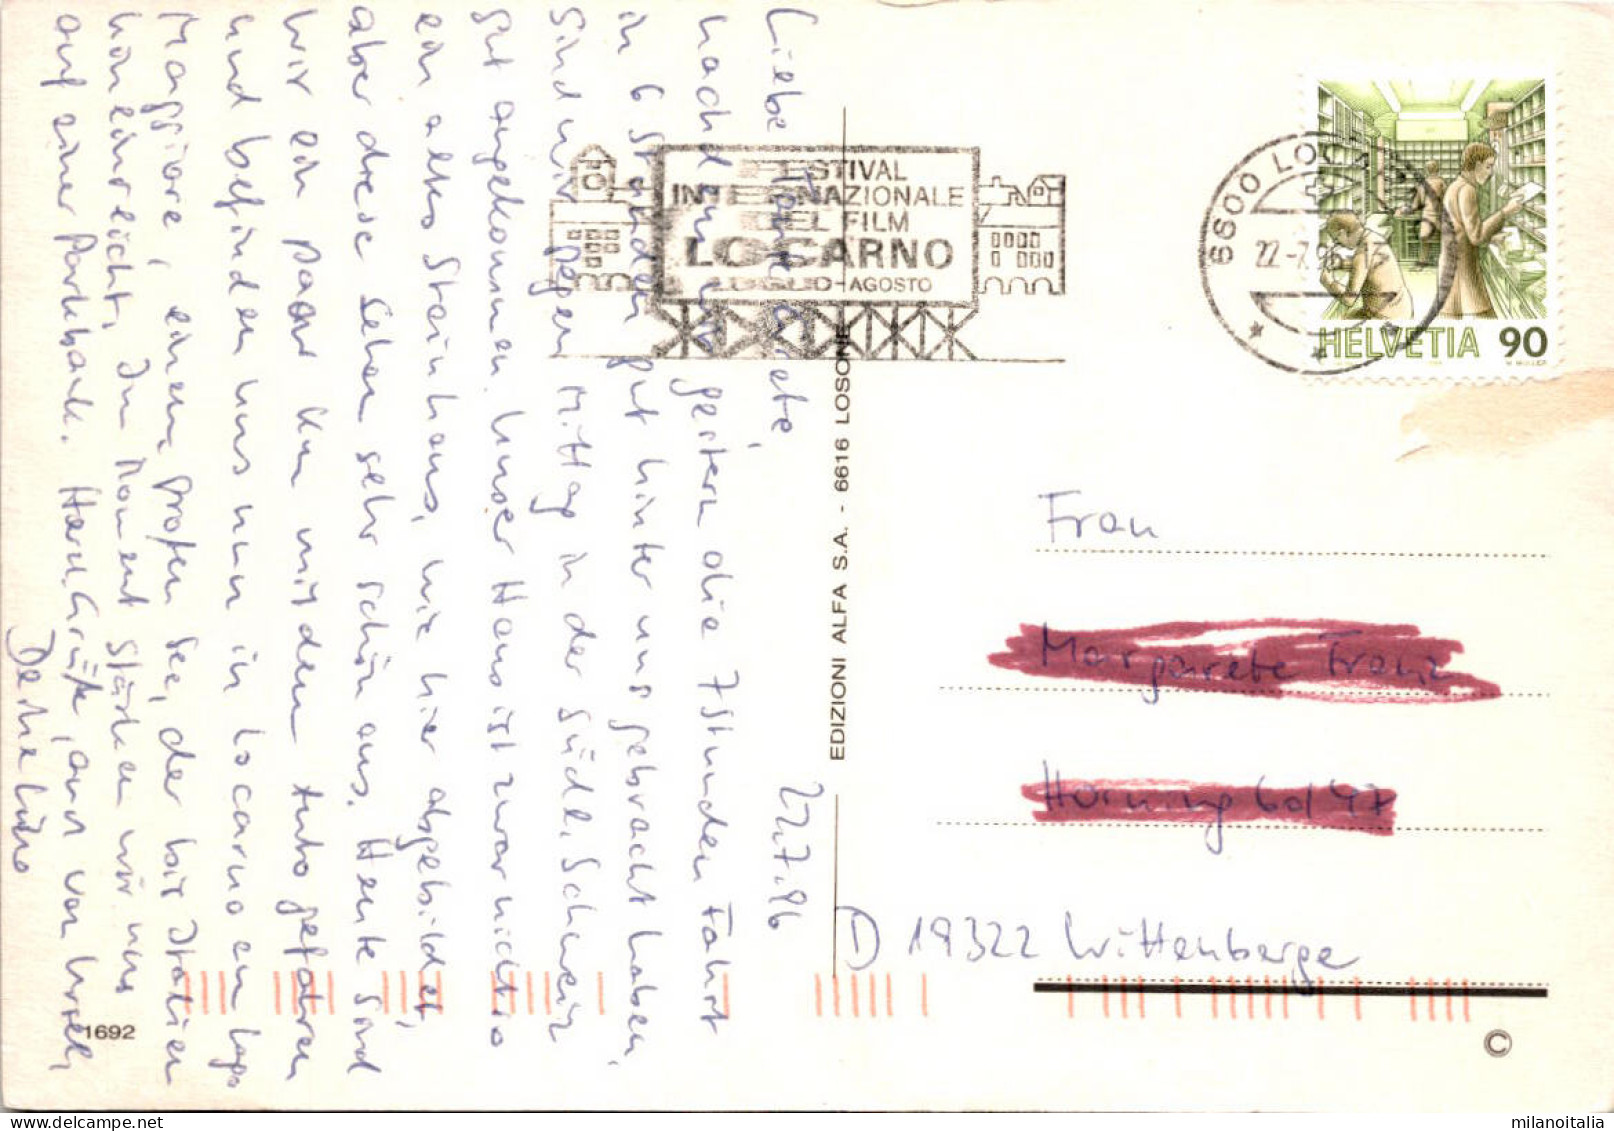 Liebe Tante Grete, 22.7.96
nachdem wir gestern die 7 Stunden Fahrt
in 6 Stunden gut hinter uns gebracht haben,
sind wir gegen Mittag in der südl. Schweiz
gut angekommen. Unser Haus ist zwar nicht so
ein altes Steinhaus, wie hier abgebildet,
aber diese sehen sehr schön aus. Heute sind
wir ein paar km mit dem Auto gefahren
und befinden uns nun in Locarno am Lago
Maggiore, einem großen See, der bis Italien
hineinreicht. Im Moment stärken wir uns
auf einer Parkbank. Herzl. Grüße, auch von
FESTIVAL
INTERNAZIONALE
DEL FILM
LOCARNO
LUGLIO-AGOSTO
6600 LOCARNO
22-7.96
HELVETIA 90
EDIZIONI ALFA S.A. - 6616 LOSONE
Frau
Margarete Franz
Horning 60/47
D 19322 Wittenberge
1692
©
milanoitalia